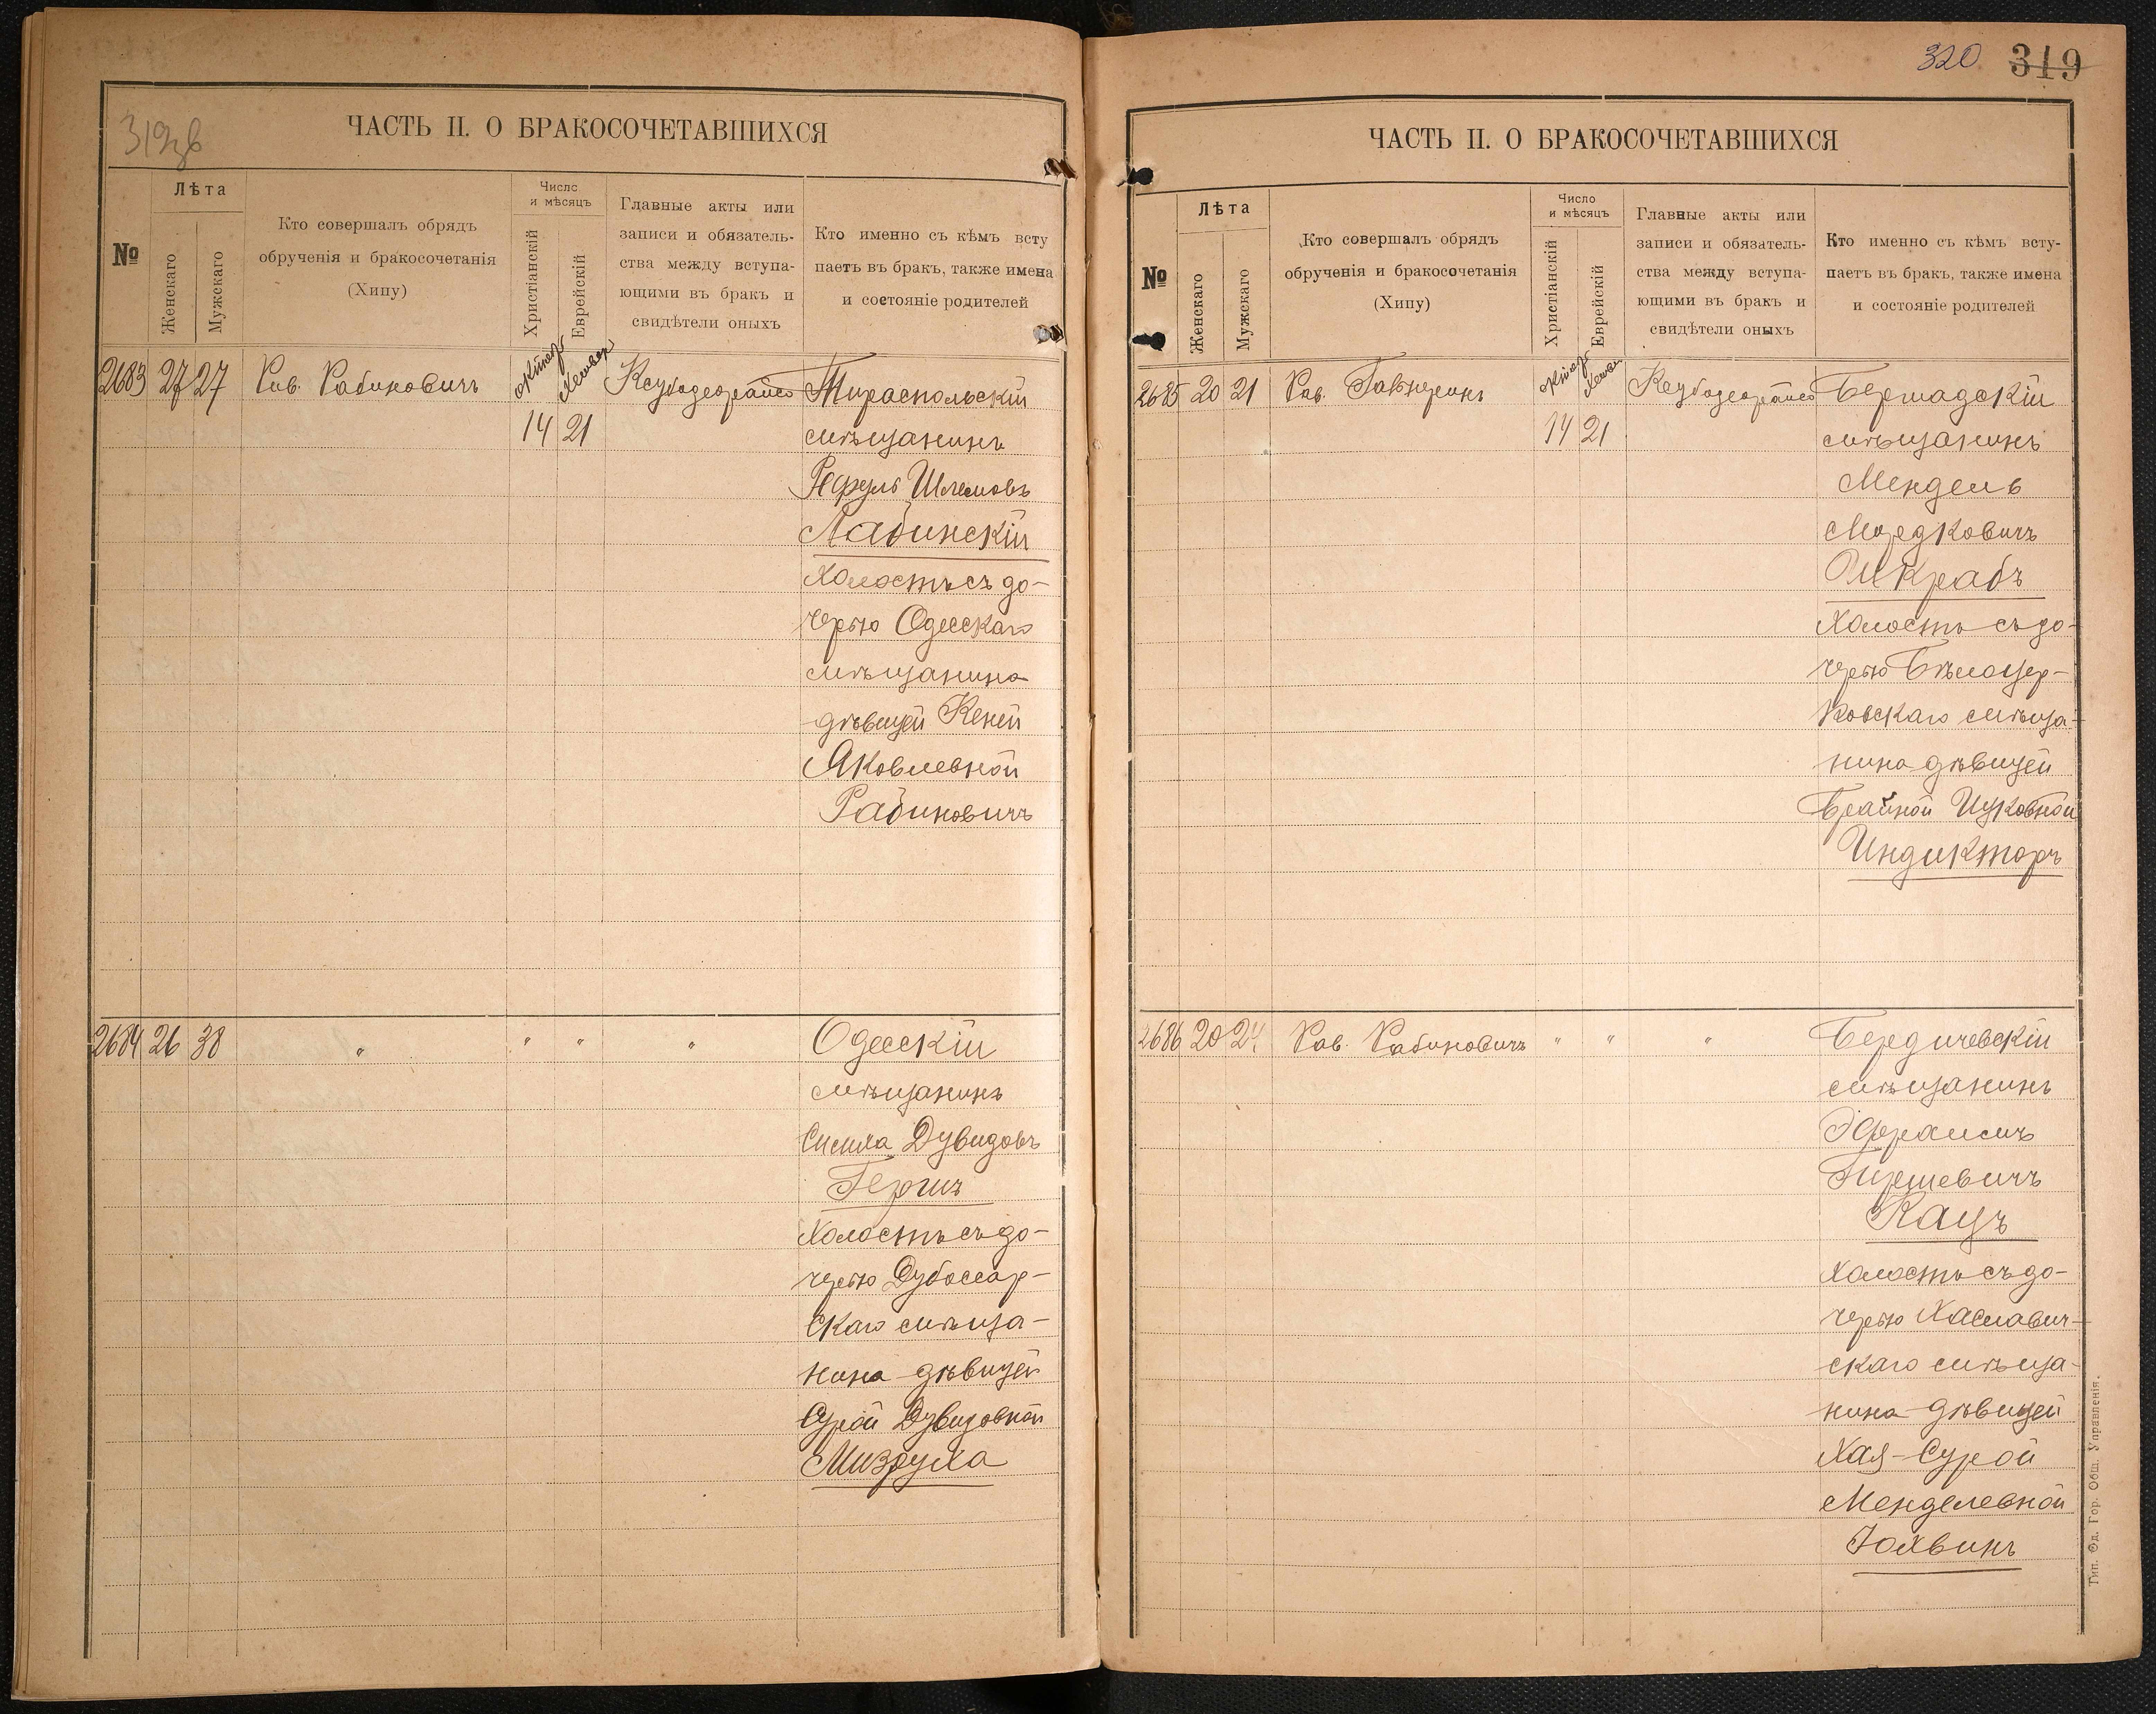 319зв
ЧАСТЬ II. О БРАКОСОЧЕТАВШИХСЯ
№
Лѣта
Женскаго
Мужскаго
Кто совершалъ обрядъ
обрученія и бракосочетанія
(Хипу)
Число
и мѣсяцъ
Христіанскій
Еврейскій
Главные акты или
записи и обязатель-
ства между вступа-
ющими въ бракъ и
свидѣтели оныхъ
Кто именно съ кѣмъ всту
паетъ въ бракъ, также имена
и состояніе родителей
2683 27 27 Рав. Рабиновичъ
14 21
Тираспольскій
мѣщанинъ
Шлемовъ
Лабинскій
Холостъ съ до-
черью Одесскаго
мѣщанина
дѣвицей Кеней
Яковлевной
Рабиновичъ
2684 26 38 " " " "
Одесскій
мѣщанинъ
Симха Дувидовъ
Гершъ
Холостъ съ до-
черью Дубоссар-
скаго мѣща-
нина дѣвицей
Сурой Дувидовной
Мизруха
320 319
ЧАСТЬ II. О БРАКОСОЧЕТАВШИХСЯ
№
Лѣта
Женскаго
Мужскаго
Кто совершалъ обрядъ
обрученія и бракосочетанія
(Хипу)
Число
и мѣсяцъ
Христіанскій
Еврейскій
Главные акты или
записи и обязатель-
ства между вступа-
ющими въ бракъ и
свидѣтели оныхъ
Кто именно съ кѣмъ всту-
паетъ въ бракъ, также имена
и состояніе родителей
2685 20 21 Рав.
14 21
Бершадскій
мѣщанинъ
Мендель
Мордковичъ
Шкрабъ
Холостъ съ до-
черью Бѣлоцер-
ковскаго мѣща-
нина дѣвицей
Брайной Ицковной
Индикторъ
2686 20 24 Рав. Рабиновичъ " " "
Бердичевскій
мѣщанинъ
Эфраимъ
Гершевичъ
Кацъ
Холостъ съ до-
черью Хаславич-
скаго мѣща-
нина дѣвицей
Хая-Сурой
Менделевной
Іохвинъ
Тип. Од. Гор. Общ. Управленія.